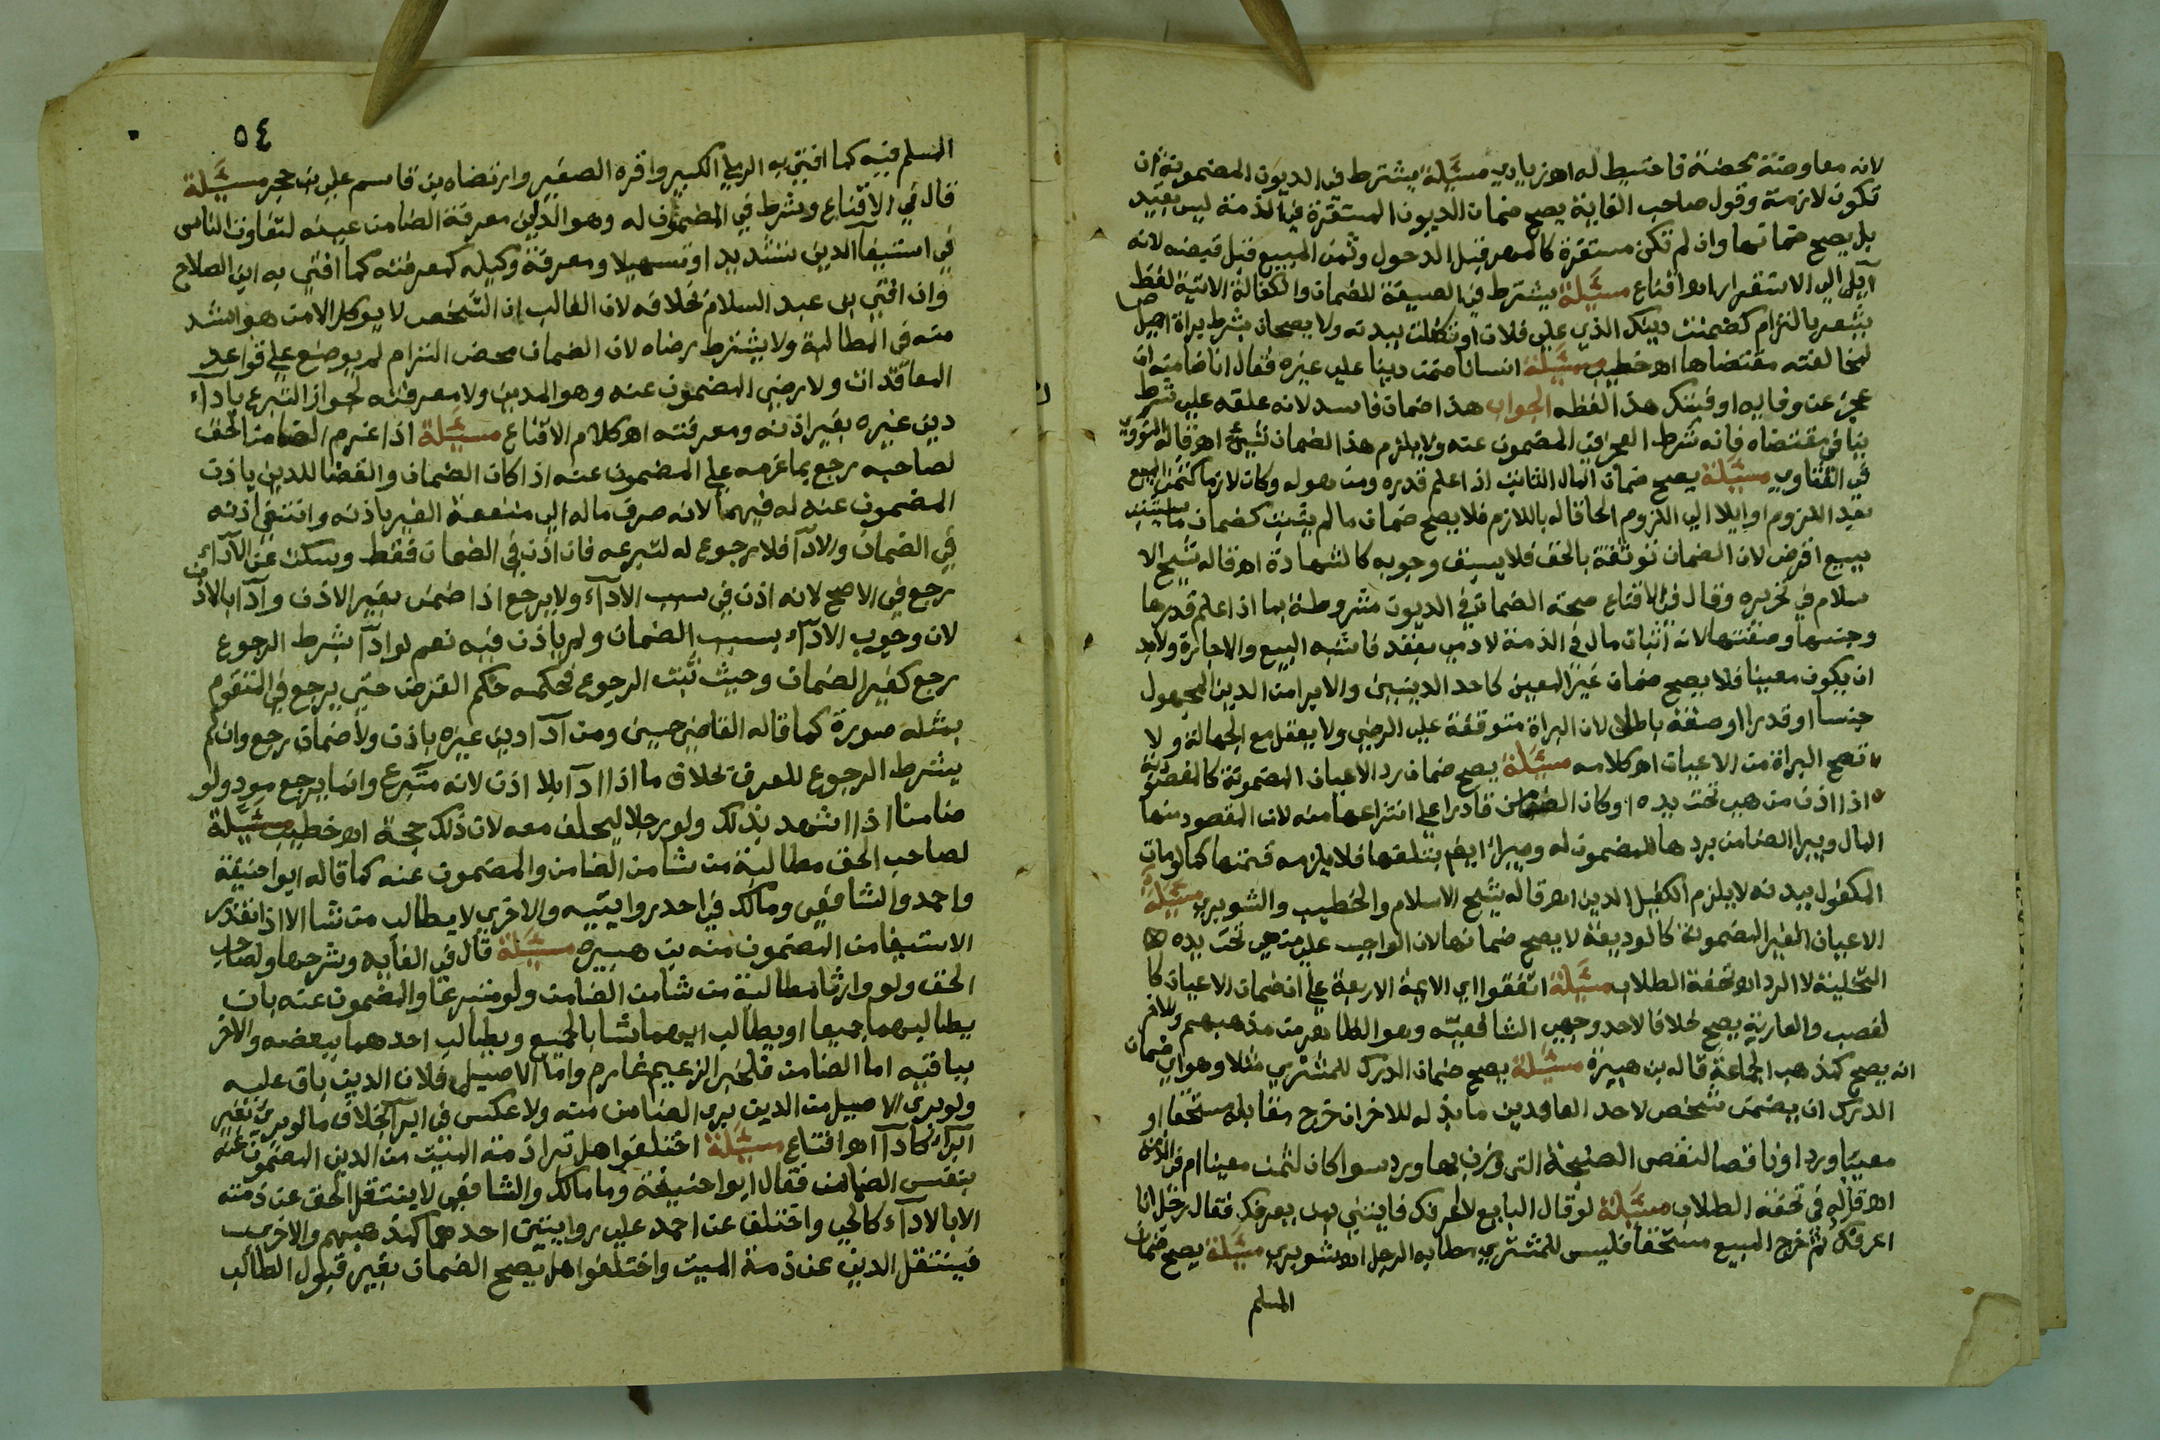 لانه معاوضة محضة فاحتيط له اهز يادي مسئلة يشترط في الديون المضمونة ان
تكون لازمة وقول صاحب الغاية يصح ضمان الديون المستقرة في الذمة ليس بقيد
بل يصح ضمانها وان لم تكن مستقرة كالمهر قبل الدخول وثمن المبيع قبل قبضه لانه
آيل الي الاستقرار اه اقناع مسئلة يشترط في الصيغة للضمان والكفالة الاتية لفظ
يشعر بالتزام كضمنت دينك الذي علي فلان او تكفلت ببدنه ولا يصحان بشرط براة اصيل
لمخالفته مقتضاها اه خطيب مسئلة انسانا ضمن دينا علي غيره فقال انا ضامنه ان
عجز عن وفايه او فيتك هذا لفظه الجواب هذا ضمان فاسد لانه علقه علي شرط
ينافي مقتضاه فانه شرط العجز في المضمون عنه ولا يلزم هذا الضمان شيئ اهز قاله النووي
في الفتاوي مسئلة يصح ضمان المال الثابت اذا علم قدره ومن هو له وكان لازما كثمن المبيع
بعيد اللزوم او ايلا الي اللزوم الحاقا له باللازم فلا يصح ضمان ما لم يثبت كضمان ما سيثبت
ببيع او قرض لان الضمان توثقة بالحق فلا يسبق وجوبه كالشهادة اهز قاله شيخ الا
سلام في تحريره وقال في الاقناع صحة الضمان في الديون مشروطة بما اذا علم قدرها
وجنسها وصفتها لانه اثبات مال في الذمة لادمي بعقد فاشبه البيع والاجارة ولا بد
ان يكون معينا فلا يصح ضمان غير المعين كاحد الدينين والابرا من الدين المجهول
جنسا او قدرا او صفة باطل لان البراة متوقفة علي الرضي ولا يعقل مع الجهالة ولا
تصح البراة من الاعيان اه كلامه مسئلة يصح ضمان رد الاعيان المضمونة كالمغصوبة
اذا اذن من هي تحت يده او كان الضامن قادرا علي انتزاعها منه لان المقصود منها
المال ويبرا الضامن بردها للمضمون له ويبرا ايضا بتلفها فلا يلزمه قيمتها كما لو مات
المكفول ببدنه لا يلزم الكفيل الدين اهز قاله شيخ الاسلام والخطيب والشوبري مسئلة
الاعيان الغير المضمونة كالوديعة لا يصح ضمانها لان الواجب علي من هي تحت يده
التخلية لا الرد اه تحفة الطلاب مسئلة اتفقوا اي الايمة الاربعة علي ان ضمان الاعيان كا
لغصب والعارية يصح خلافا لاحد وجهي الشافعيه وهو الظاهر من مذهبهم والاخر
انه يصح كمذهب الجماعة قاله بن هبيرة مسئلة يصح ضمان الدرك للمشتري مثلا وهو اي ضمان
الدرك ان يضمن شخص لاحد العاقدين ما بذله للاخر ان خرج مقابله مستحقا او
معيبا ورد او ناقصا لنقص الصنجة التي وزن بها ورد سوا كان الثمن معينا ام في الذمة
اه قاله في تحفة الطلاب مسئلة لو قال البايع لا اعرفك فايتني بمن يعرفك فقال رجل انا
اعرفك ثم خرج المبيع مستحقا فليس للمشتري مطالبه الرجل اه شوبري مسئلة يصح ضمان
المسلم
٥٤
المسلم فيه كما افتي به الرملي الكبير واقره الصغير وارتضاه بن قاسم علي بن حجر مسئلة
قال في الاقناع وشرط في المضمون له وهو الداين معرفة الضامن عينه لتفاوت الناس
في استيفا الدين تشديدا وتسهيلا ومعرفة وكيله كمعرفته كما افتي به ابن الصلاح
وان افتي بن عبد السلام بخلافه لان الغالب ان الشخص لا يوكل الا من هو اشد
منه في المطالبة ولا يشترط رضاه لان الضمان محض التزام لم يوضع علي قواعد
المعاقدات ولا رضي المضمون عنه وهو المدين ولا معرفته لجواز التبرع بادآء
دين غيره بغير اذنه ومعرفته اه كلام الاقناع مسئلة اذا غرم الضامن الحق
لصاحبه رجع بما غرمه علي المضمون عنه اذا كان الضمان والقضا للدين باذن
المضمون عنه له فيهما لانه صرف ماله الي منفعة الغير باذنه وانتفي اذنه
في الضمان والادآ فلا رجوع له لتبرعه فان اذن في الضمان فقط وسكت عن الادآء
رجع في الاصح لانه اذن في سبب الادآء ولا يرجع اذا ضمن بغير الاذن وادآ بالاذن
لان وجوب الادآء بسبب الضمان ولم ياذن فيه نعم لو ادآ بشرط الرجوع
رجع كغير الضمان وحيث ثبت الرجوع فحكمه حكم القرض حتي يرجع في المتقوم
بمثله صورة كما قاله القاضي حسين ومن آدآ دين غيره باذن ولا ضمان رجع وان لم
يشرط الرجوع للعرف بخلاف ما اذا ادآ بلا اذن لانه متبرع وانما يرجع مود ولو
ضامنا اذا اشهد بذلك ولو رجلا ليحلف معه لان ذلك حجة اه خطيب مسئلة
لصاحب الحق مطالبة من شا من الضامن والمضمون عنه كما قاله ابو حنيفة
واحمد والشافعي ومالك في احد روايتيه والاخري لا يطالب من شا الا اذا تعذر
الاستيفا من المضمون عنه بن هبيره مسئلة قال في الغايه وشرحها ولصاحب
الحق ولو وارثا مطالبة من شا من الضامن ولو متبرعا والمضمون عنه بان
يطالبهما جميعا او يطالب ايهما شا بالجميع ويطالب احدهما ببعضه والاخر
بباقيه اما الضامن فلخبر الزعيم غارم واما الاصيل فلان الدين باق عليه
ولو بري الاصيل من الدين بري الضامن منه ولا عكس في ابرآ بخلاف ما لو بري بغير
ابرآء كادآ اه اقناع مسئلة اختلفوا هل تبرا ذمة الميت من الدين المضمون عنه
بنفس الضمان فقال ابو حنيفة ومالك والشافعي لا ينتقل الحق عن ذمته
الا بالادآء كالحي واختلف عن احمد علي روايتين احدهما كمذهبهم والاخري
فينتقل الدين عن ذمة الميت واختلفوا هل يصح الضمان بغير قبول الطالب